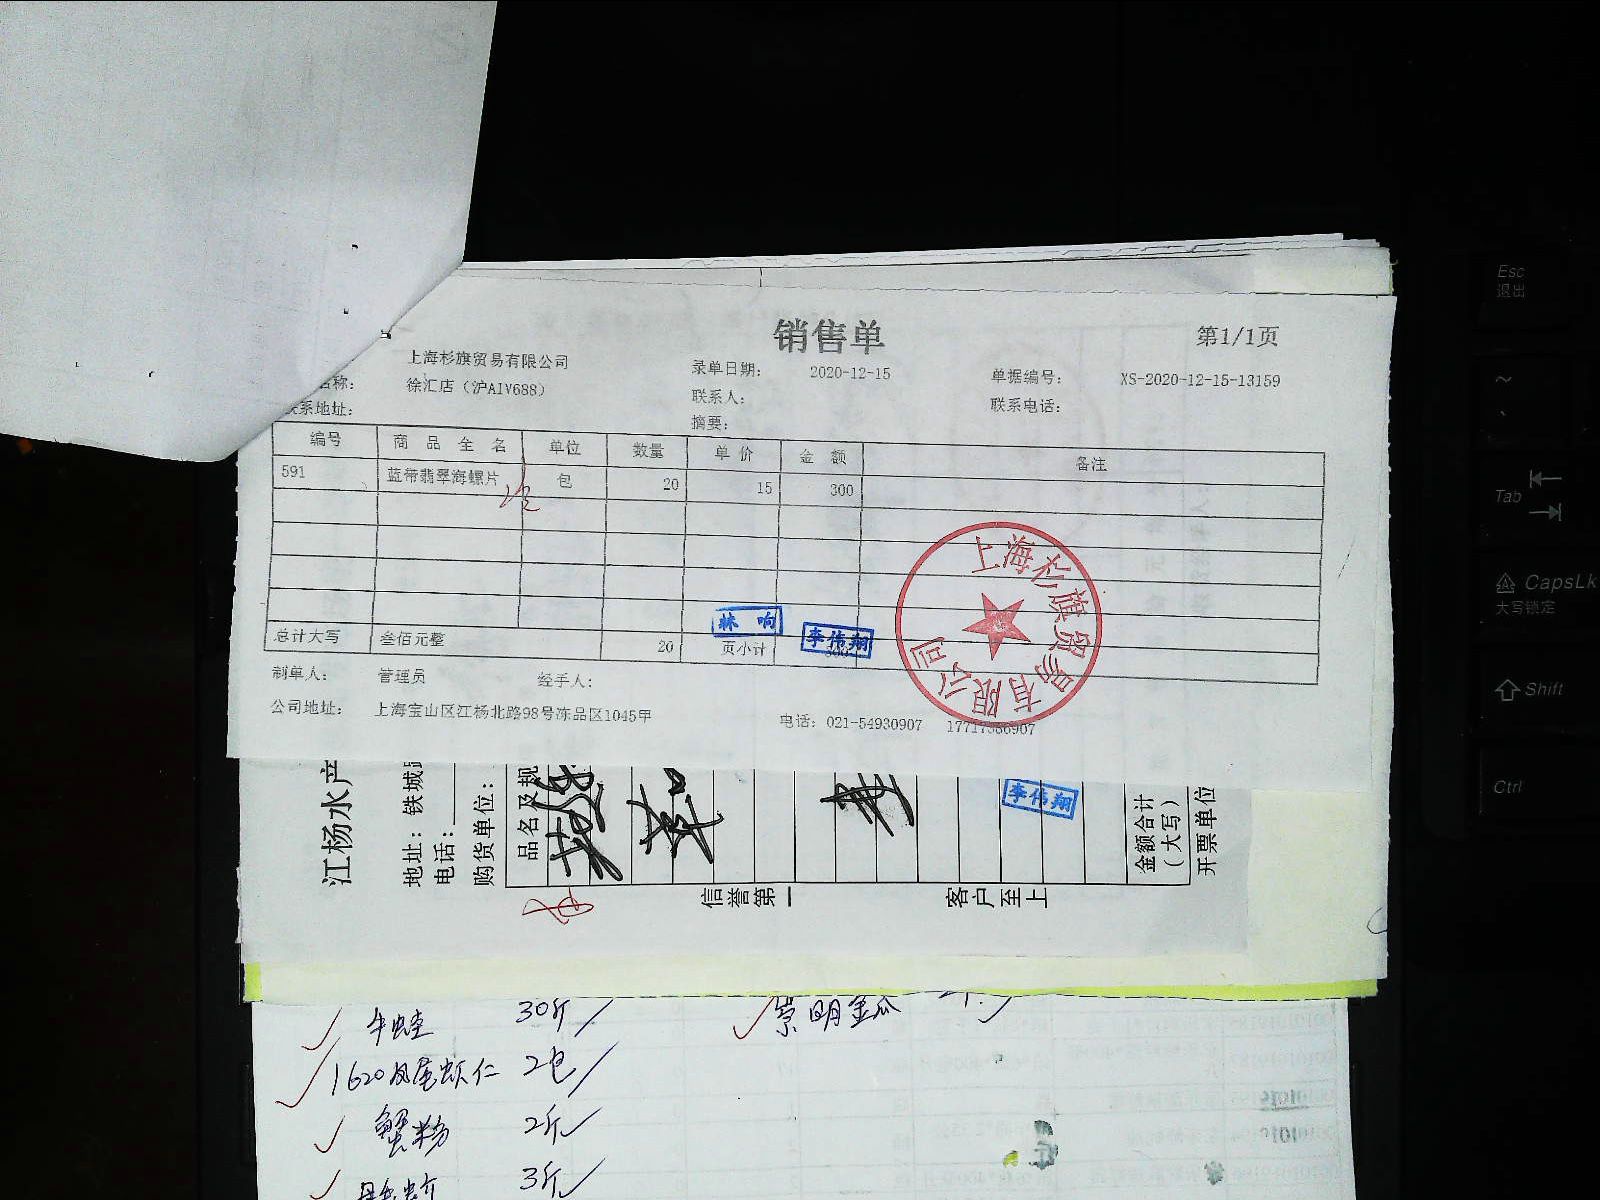 销售单
第1/1页
上海杉旗贸易有限公司
录单日期： 2020-12-15
单据编号： XS-2020-12-15-13159
名称： 徐汇店（沪A1V688）
联系人：
联系电话：
联系地址：
摘要：
编号 商品全名 单位 数量 单价 金额 备注
591 蓝带翡翠海螺片 包 20 15 300
林响
李伟翔
总计大写 叁佰元整 20 页小计
制单人： 管理员 经手人：
公司地址： 上海宝山区江杨北路98号冻品区1045甲 电话：021-54930907
上海杉旗贸易有限公司
江杨水产
地址：铁城
电话：
购货单位：
品名及规
李伟翔
金额合计
（大写）
开票单位
信誉第一
客户至上
牛蛙 30斤
崇明金瓜
1620凤尾虾仁 2包
蟹粉 2斤
3斤
Esc
退出
Tab
CapsLk
大写锁定
Shift
Ctrl